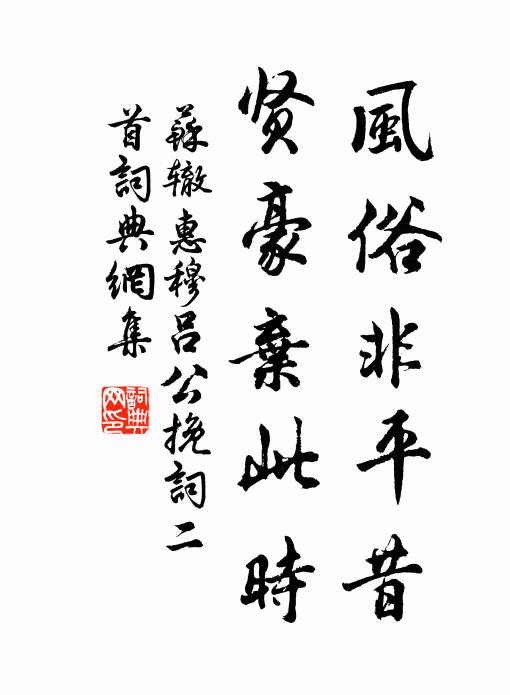 風俗非平昔
贤豪棄此時
蘇辙惠穆呂公挽詞二
首詞典網集
詞典
网印